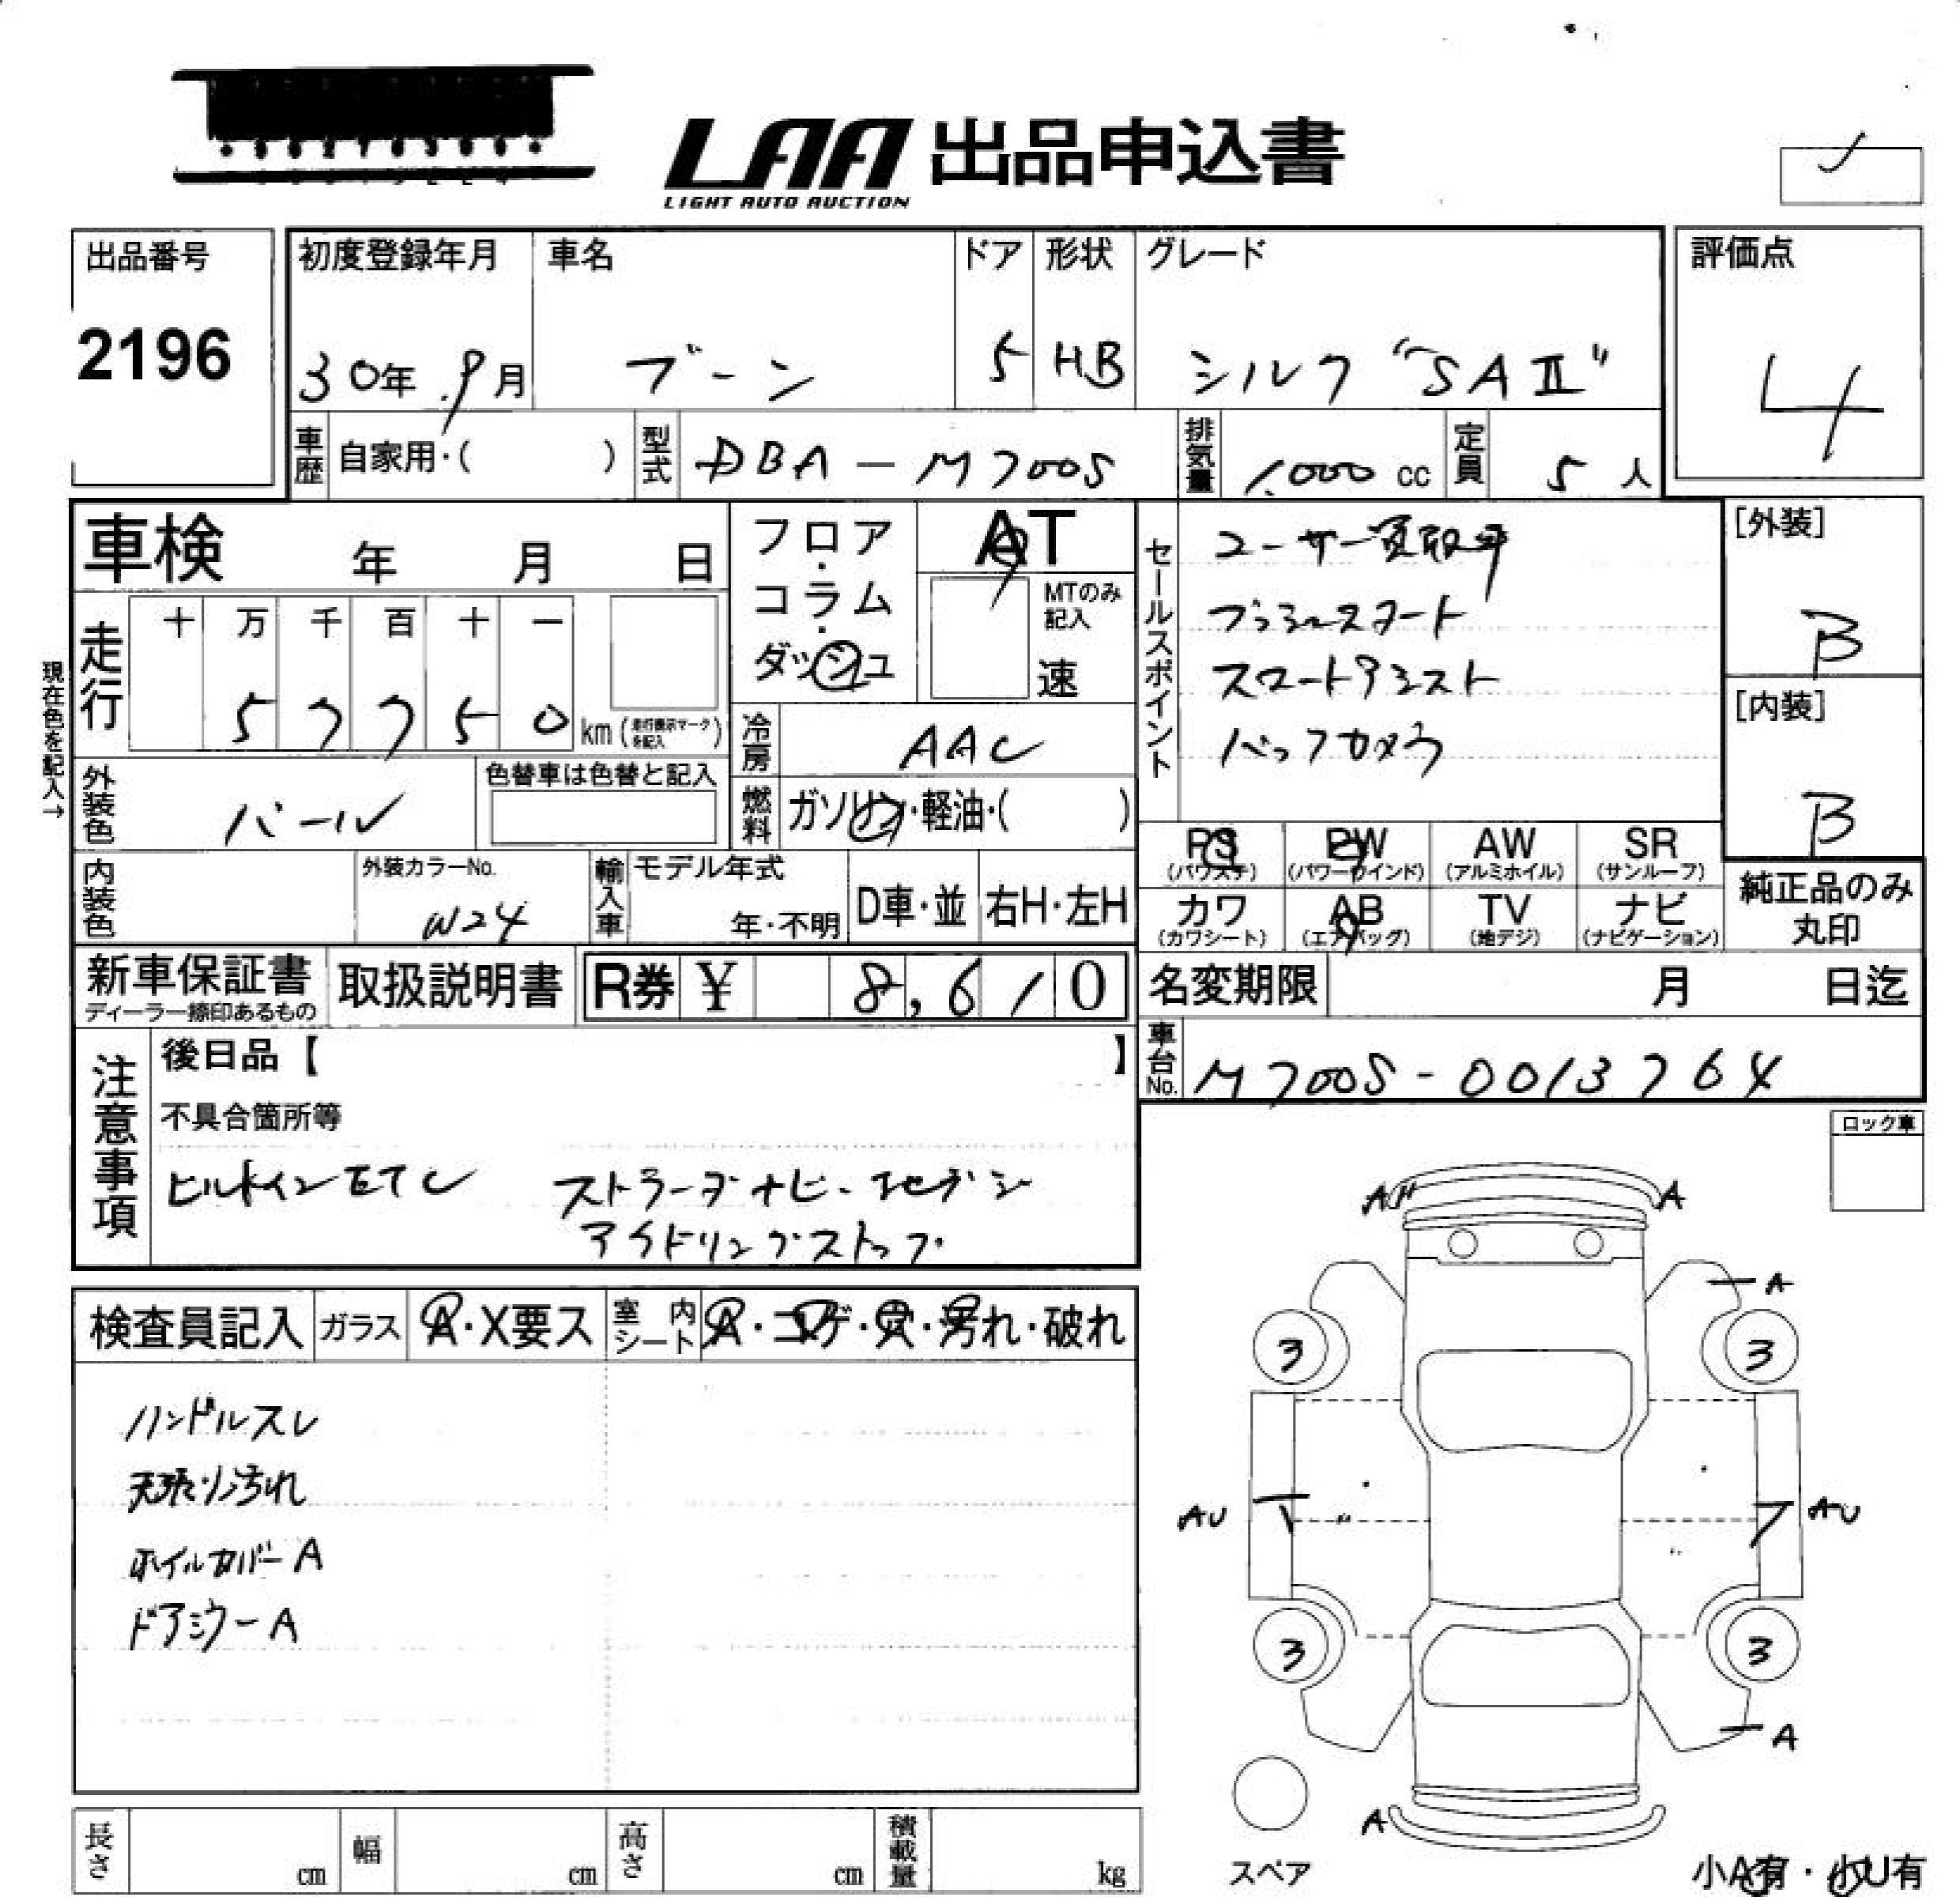 LAA 出品申込書
LIGHT AUTO AUCTION
出品番号
2196
初度登録年月
30年 9月
車名
ブーン
ドア
5
形状
HB
グレード
シルク "SAⅡ"
評価点
4
車歴 自家用・( )
型式 DBA-M700S
排気量 1,000 cc
定員 5 人
車検 年 月 日
フロア・コラム・ダッシュ
AT
MTのみ記入
速
セールスポイント
ユーザー買取車
プッシュスタート
スマートアシスト
バックカメラ
[外装]
B
[内装]
B
現在色を記入→
走行
十 万 千 百 十 一
5 7 7 5 0 km (走行表示マークを記入)
冷房 AAC
外装色 パール
色替車は色替と記入
燃料 ガソリン・軽油・( )
PS (パワステ)
PW (パワーウインド)
AW (アルミホイル)
SR (サンルーフ)
カワ (カワシート)
AB (エアバッグ)
TV (地デジ)
ナビ (ナビゲーション)
純正品のみ丸印
内装色
外装カラーNo.
W24
輸入車
モデル年式
年・不明
D車・並
右H・左H
新車保証書
ディーラー捺印あるもの
取扱説明書
R券 ¥ 8,610
名変期限 月 日迄
車台No. M700S-0013764
注意事項
後日品【 】
不具合箇所等
ビルトインETC ストラーダナビ・フルセグ
アイドリングストップ
ロック車
検査員記入
ガラス A・X要ス
室内シート A・コゲ・穴・汚れ・破れ
ハンドルスレ
天張り汚れ
ホイルカバーA
ドアミラーA
A
A
A
3
3
AU
AU
3
3
A
A
スペア
小A有・小U有
長さ cm
幅 cm
高さ cm
積載量 kg